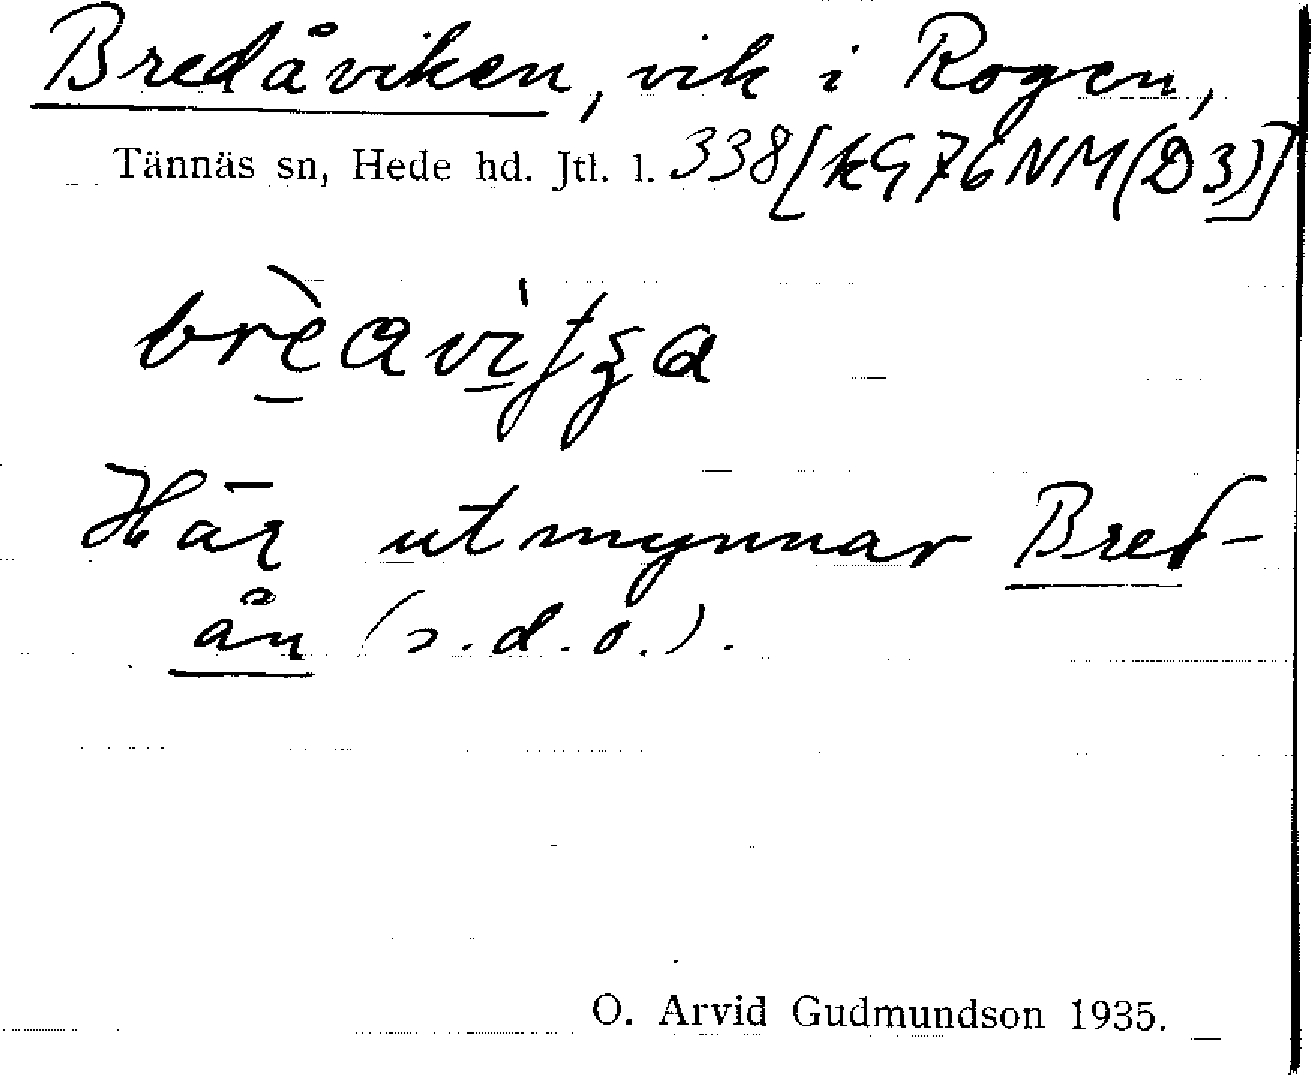 Bredåviken, vik i Rogen,
Tännäs sn, Hede hd. Jtl. l. 338 [kG76NM(D3)]
Här utmynnar Bred-
ån (s.d.o.).
O. Arvid Gudmundson 1935.